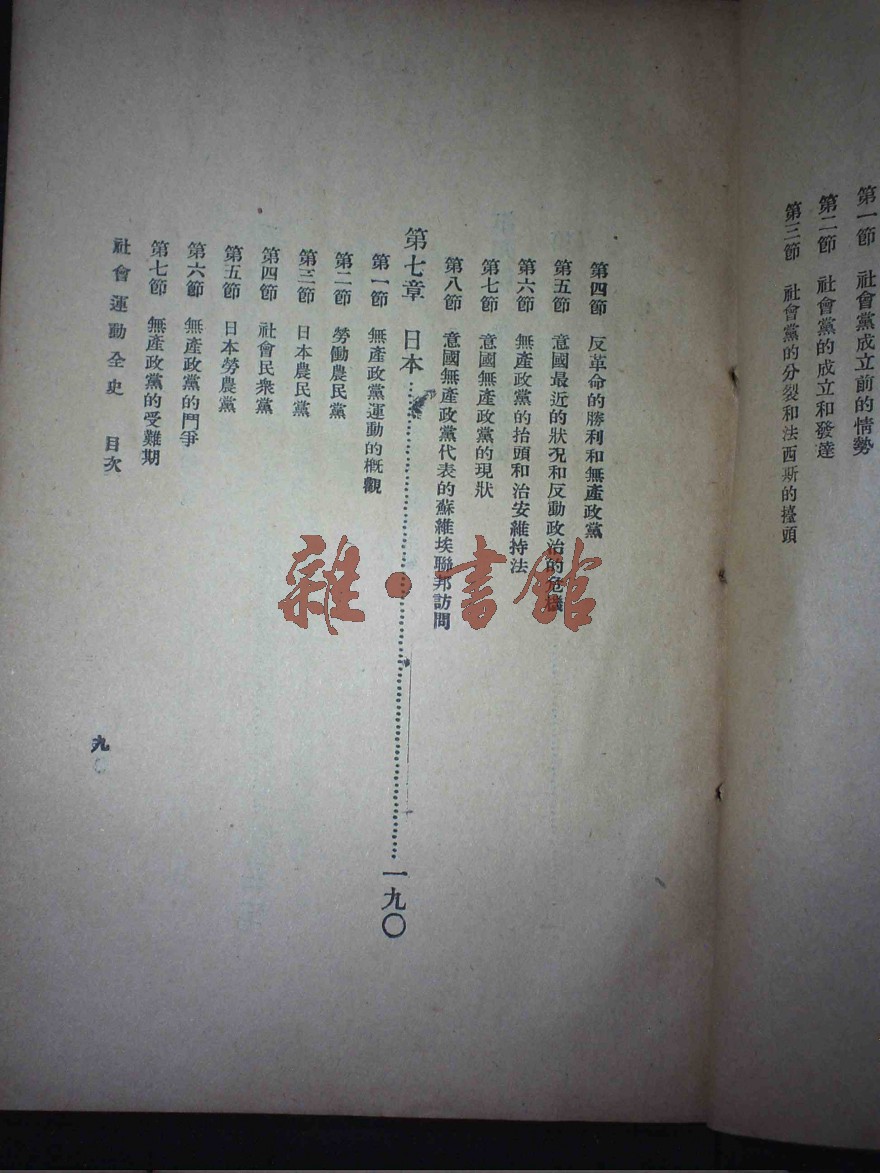 第一節 社會黨成立前的情勢
第二節 社會黨的成立和發達
第三節 社會黨的分裂和法西斯的擡頭
第四節 反革命的勝利和無產政黨
第五節 意國最近的狀況和反動政治的危機
第六節 無產政黨的抬頭和治安維持法
第七節 意國無產政黨的現狀
第八節 意國無產政黨代表的蘇維埃聯邦訪問
第七章 日本……………………………………一九〇
第一節 無產政黨運動的概觀
第二節 勞働農民黨
第三節 日本農民黨
第四節 社會民衆黨
第五節 日本勞農黨
第六節 無產政黨的鬥爭
第七節 無產政黨的受難期
社會運動全史 目次
九
雜·書館